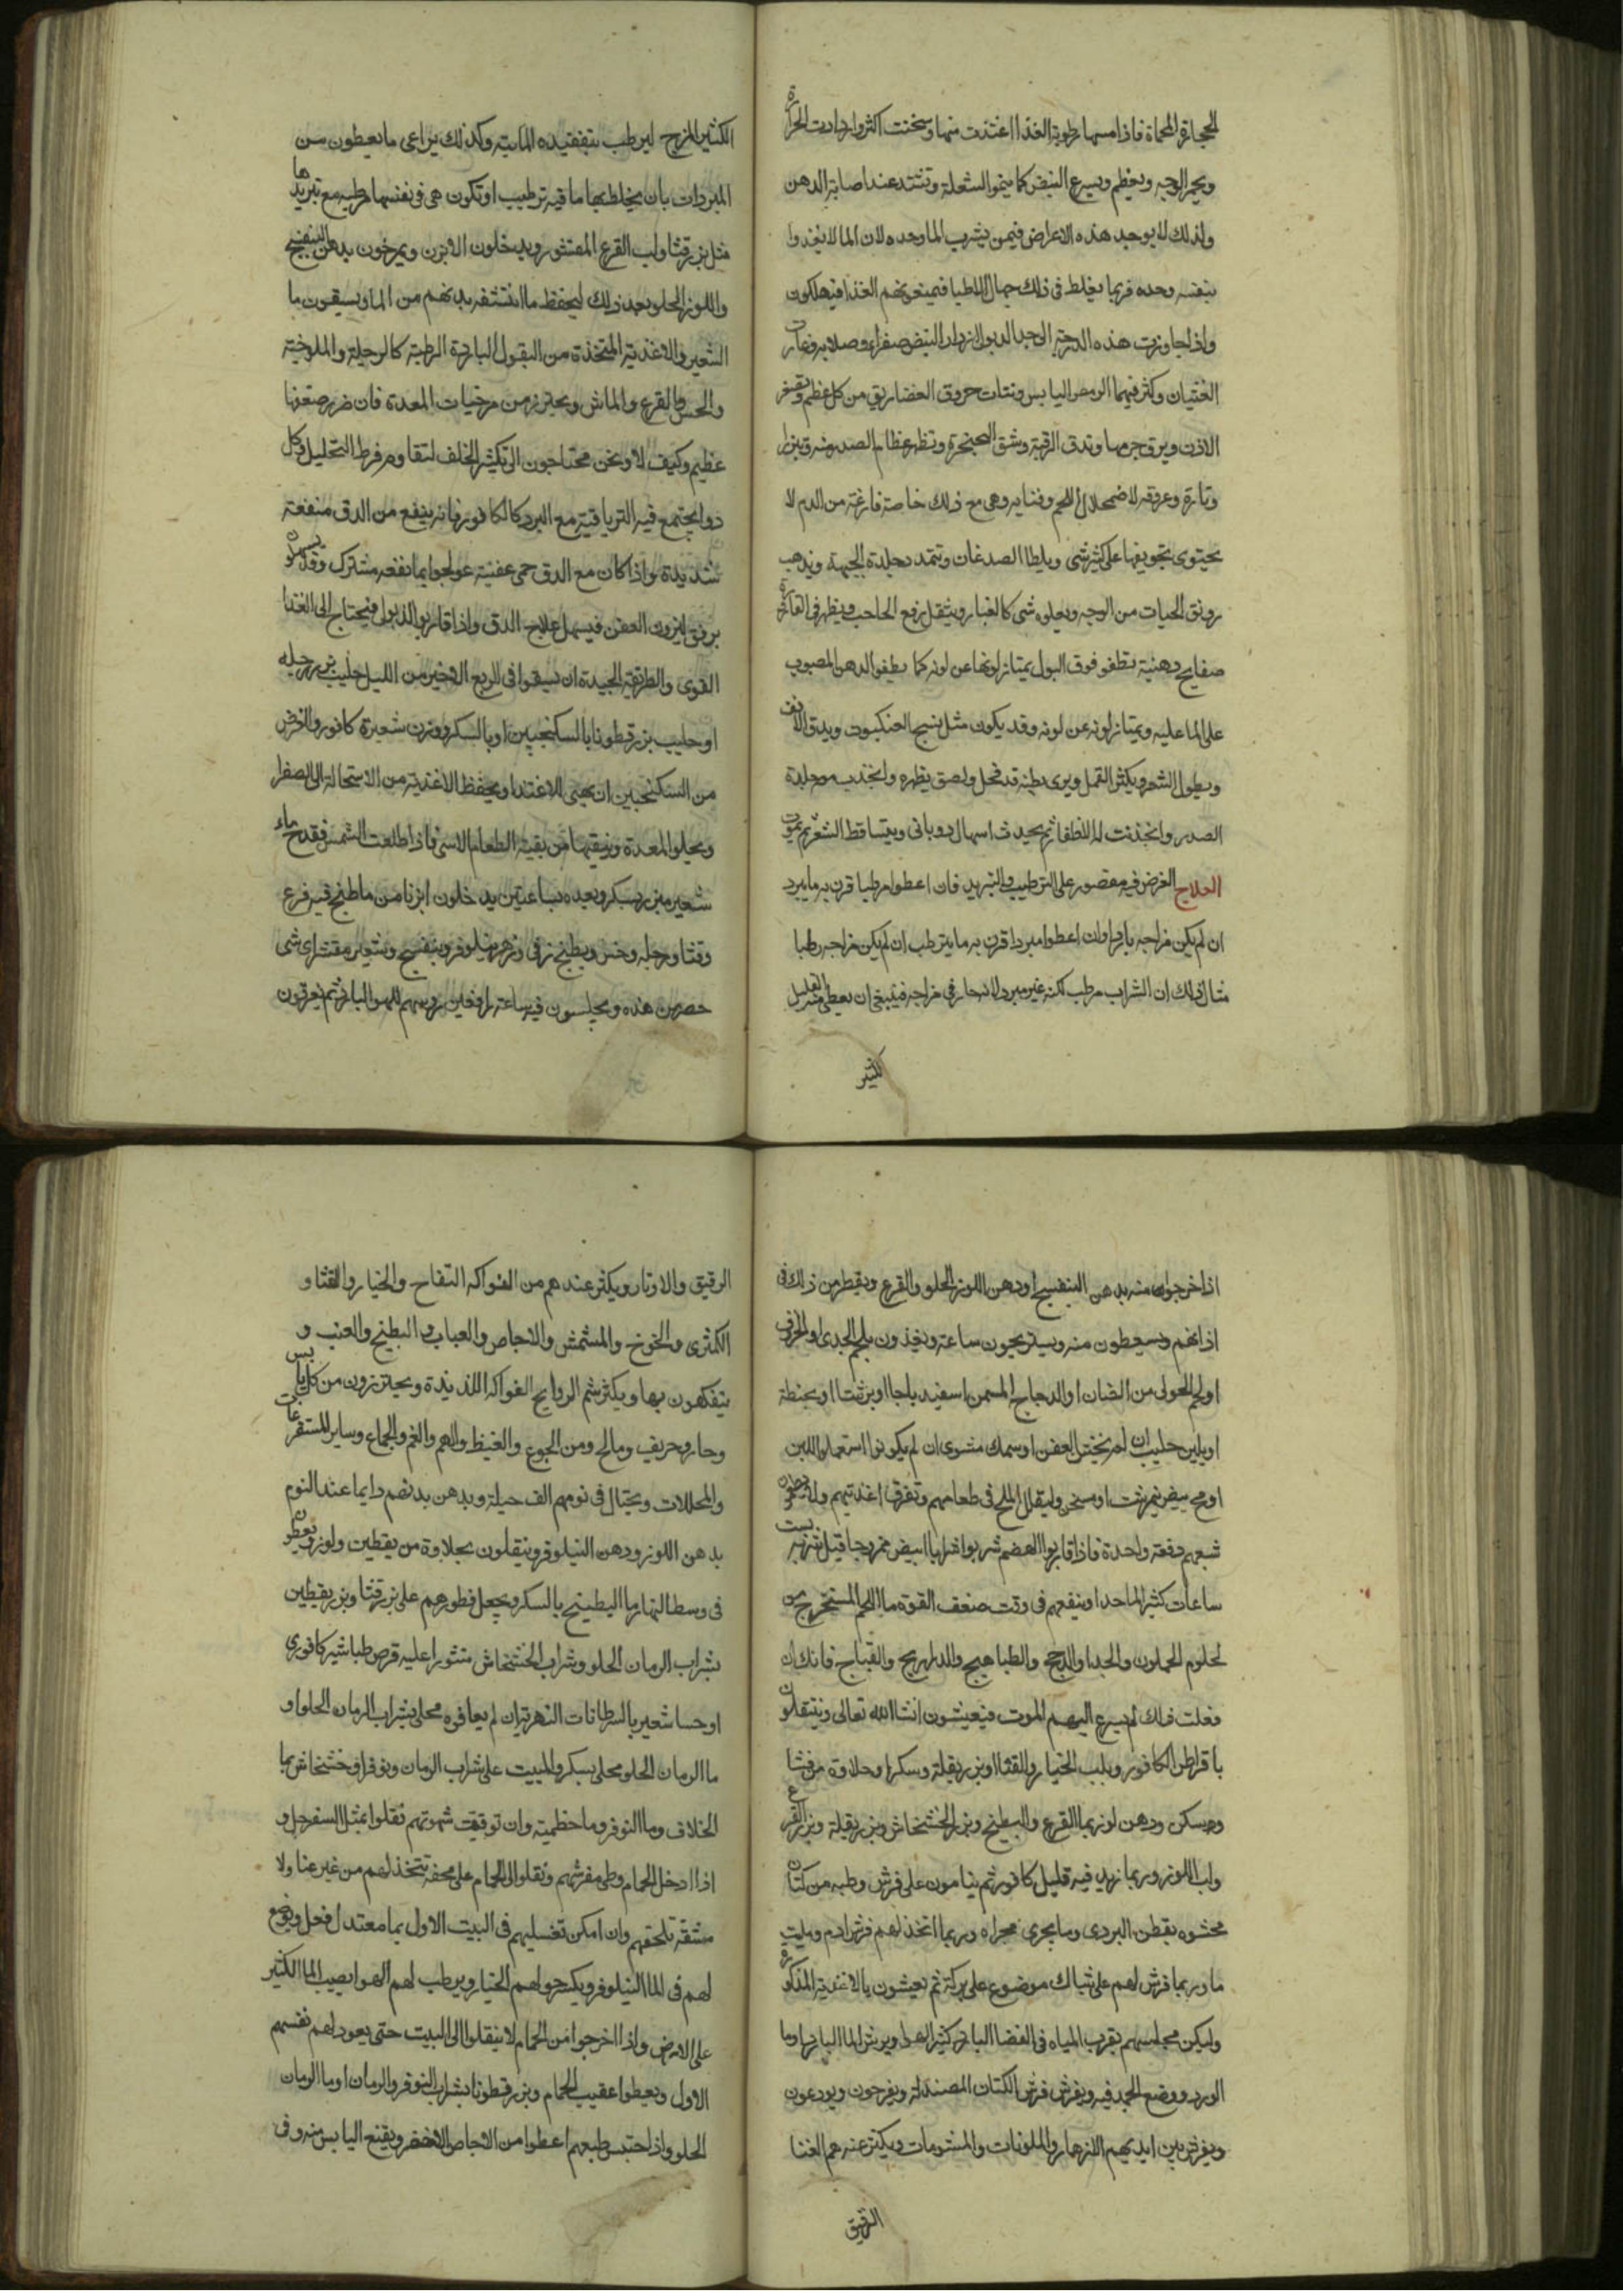 للحجارة المحماة فاذا مسها رطوبة الغذا اغتذت منها وسخنت اكثر وازدادت الحرارة
ويحمر الوجه ويعظم ويسرع النبض كما ينمو الشعلة وتشتد عند اصابة الدهن
ولذلك لا يوجد هذه الاعراض فيمن يشرب الما وحده لان الما لا يغذوا
بنفسه وحده فربما يغلط فى ذلك جهال الاطبا فيمنعونهم الغذا فيهلكون
واذا جاوزت هذه الدرجة الى حد الذبول ازداد النبض صغرا وصلابه وغارت
العينان وكثر فيهما الرمص اليابس ونتات حروف العضاريق من كل عظم ويصغر
الاذن ويرق جرمها وتدق الرقبة وتشق الحنجرة وتظهر عظام الصدر منه وتبرز
وتارة وعروقه لاضمحلال اللحم وفنايه وهى مع ذلك خاصة فارغة من الدم لا
يحتوى تجويفها على كثير شى ويلطا الصدغان وتتمدد جلدة الجبهة ويذهب
رونق الحيات من الوجه ويعلوه شى كالغبار ويثقل رفع الحاجب ويظهر فى القارورة
صفايح دهنية تطفو فوق البول يمتاز لونها عن لونه كما يطفو الدهن المصبوب
على الما عليه ويمتاز لونه عن لونه وقد يكون مثل نسج العنكبوت ويدق الانف
ويطول الشعر ويكثر القمل ويرى بطنه قد قحل ولصق بظهره وانجذب معه جلدة
الصدر وانجذبت له الاظفار ثم يحدث اسهال ذوبانى ويتساقط الشعر ثم يموت
العلاج الغرض فيه مقصور على الترطيب والتبريد فان اعطوا مرطبا قرن به ما يبرد
ان لم يكن مزاجه باردا وان اعطوا مبردا قرن به ما يترطب ان لم يكن مزاجه رطبا
مثال ذلك ان الشراب مرطب لكنه غير مبرد لانه حار فى مزاجه فينبغى ان يعطى منه القليل
لكثير
الكثير المزج ليرطب بتفقيده المائية وكذلك يراعى ما يعطون من
المبردات بان يخلط بها ما فيه ترطيب او تكون هى فى نفسها مرطبه مع تبريدها
مثل بزر قثا ولب القرع المقشور ويدخلون الابزن ويمرخون بدهن البنفسج
واللوز الحلو بعد ذلك ليحفظ ما انتشفه بدنهم من الما ويسقون ما
الشعير والاغذية المتخذة من البقول الباردة الرطبة كالرجلة والملوخية
والخس والقرع والماش ويحترز من مرخيات المعدة فان ضرر ضعفها
عظيم وكيف لا ونحن محتاجون الى تكثير الخلف لتقاوم فرط التحليل وكل
دوا يجتمع فيه الترياقية مع البرد كالكافور فانه ينفع من الدق منفعة
شديدة واذا كان مع الدق حمى عفنية عولجوا بما نفعه مشترك وقد يسهلوا
برفق ليزول العفن فيسهل علاج الدق واذا قاربوا الذبول فيحتاج الى الغذا
القوى والطريقة الجيدة ان يسقوا فى الربع الاخير من الليل حليب بزر رجله
او حليب بزر قطونا بالسكنجبين او بالسكر ووزن شعيرة كافور والغرض
من السكنجبين ان يهيى للاغتذا ويحفظ الاغذية من الاستحالة الى الصفرا
ويجلوا المعدة وينقيها من بقية الطعام الامسى فاذا طلعت الشمس فقدح ماء
شعير مبزر بسكر وبعده بساعتين يدخلون ابزنا من ما طبخ فيه قرع
وقثا ورجله وخس وبطيخ زقى وزهر نيلوفر وبنفسج وشعير مقشر اى شى
حضر من هذه ويجلسون فيه ساعة رافعين روسهم للهوا البارد ثم يعرقون
اذا خرجوا منه بدهن البنفسج او دهن اللوز الحلو والقرع ويقطر من ذلك فى
اذانهم ويسعطون منه ويستريحون ساعة ويغذون بلحم الجدى او الخروف
او لحم الحولى من الضان او الدجاج المسمن اسفيدباجا او بزقثا او بحنطة
او بلبن حليب ان لم نخش العفن او سمك مشوى ان لم يكونوا استعملوا اللبن
او مح بيض نيمرشت او مسخن وليقلل الملح فى طعامهم وتفرق اغذيتهم ولا يطعمون
شبعهم دفعة واحدة فاذا قاربوا الهضم شربوا شرابا ابيض ممزوجا قبل شربه بست
ساعات كثير الما جدا وينفعهم فى وقت ضعف القوة ما اللحم المستخرج من
لحوم الحملون والجدا والدجج والطباهيج والدراريج والقباج فانك ان
فعلت ذلك لم يسرع اليهم الموت فيعيشون انشا الله تعالى ويتنقلون
باقراص الكافور وبلب الخيار والقثا او بزر بقلة وسكر او حلاوة من قثا
وسكر ودهن لوز بما القرع والبطيخ وبزر الخشخاش وبزر بقلة وبزر القرع
ولب اللوز وربما زيد فيه قليل كافور ثم ينامون على فرش وطيه من كتان
محشوه بقطن البردى وما يجرى مجراه وربما اتخذ لهم فرش ادم ومليت
ما وربما فرش لهم على شباك موضوع على بركة ثم يعيشون بالاغذية المذكورة
وليكن مجلسهم بقرب المياه فى الفضا البارد كثير الهوا ويرش الما البارد او ما
الورد ووضع الجمد فيه ويفرش فرش الكتان المصندلة ويفرحون ويودعون
ويفرش بين ايديهم الازهار والملونات والمشمومات ويكثر عندهم الغنا
الرقيق
الرقيق والاوتار ويكثر عندهم من الفواكه التفاح والخيار والقثا و
الكمثرى والخوخ والمشمش والاجاص والعناب والبطيخ والعنب و
يتفكهون بها ويكثر شم الروايح الفواكه اللذيذة ويحترزون من كل يابس
وحار وحريف ومالح ومن الجوع والغيظ والهم والغم والجماع وساير المستفرغات
والمحللات ويحتال فى نومهم الف حيلة ويدهن بدنهم دايما عند النوم
بدهن اللوز ودهن النيلوفر ويتنقلون بحلاوة من يقطين ولوز ويعطون
فى وسط النهار ما البطيخ بالسكر ويجعل فطورهم على بزر قثا وبزر يقطين
بشراب الرمان الحلو وشراب الخشخاش منثورا عليه قرص طباشير كافورى
او حسا شعير بالسرطانات النهرية ان لم يعافوه محلى بشراب الرمان الحلو او
ما الرمان الحلو محلى بسكر والمبيت على شراب الرمان ونوفر او خشخاش بما
الخلاف وما النوفر وما خطمية وان توقفت شهوتهم نقلوا بمثل السفرجل و
اذا دخل الحمام وطى مفرشهم ونقلوا الى الحمام على محفة تتخذ لهم من غير عنا ولا
مشقة تلحقهم وان امكن تغسليهم فى البيت الاول بما معتدل فعل ويوضع
لهم فى الما النيلوفر ويكسروا لهم الخيار ويرطب لهم الهوا بصب الما الكثير
على الارض واذا اخرجوا من الحمام لا ينقلوا الى البيت حتى يعود لهم نفسهم
الاول ويعطوا عقيب الحمام وبزر قطونا بشراب النوفر والرمان او ما الرمان
الحلو واذا احتبس طبعهم اعطوا من الاجاص الاخضر وبقنع اليابس منه وفى